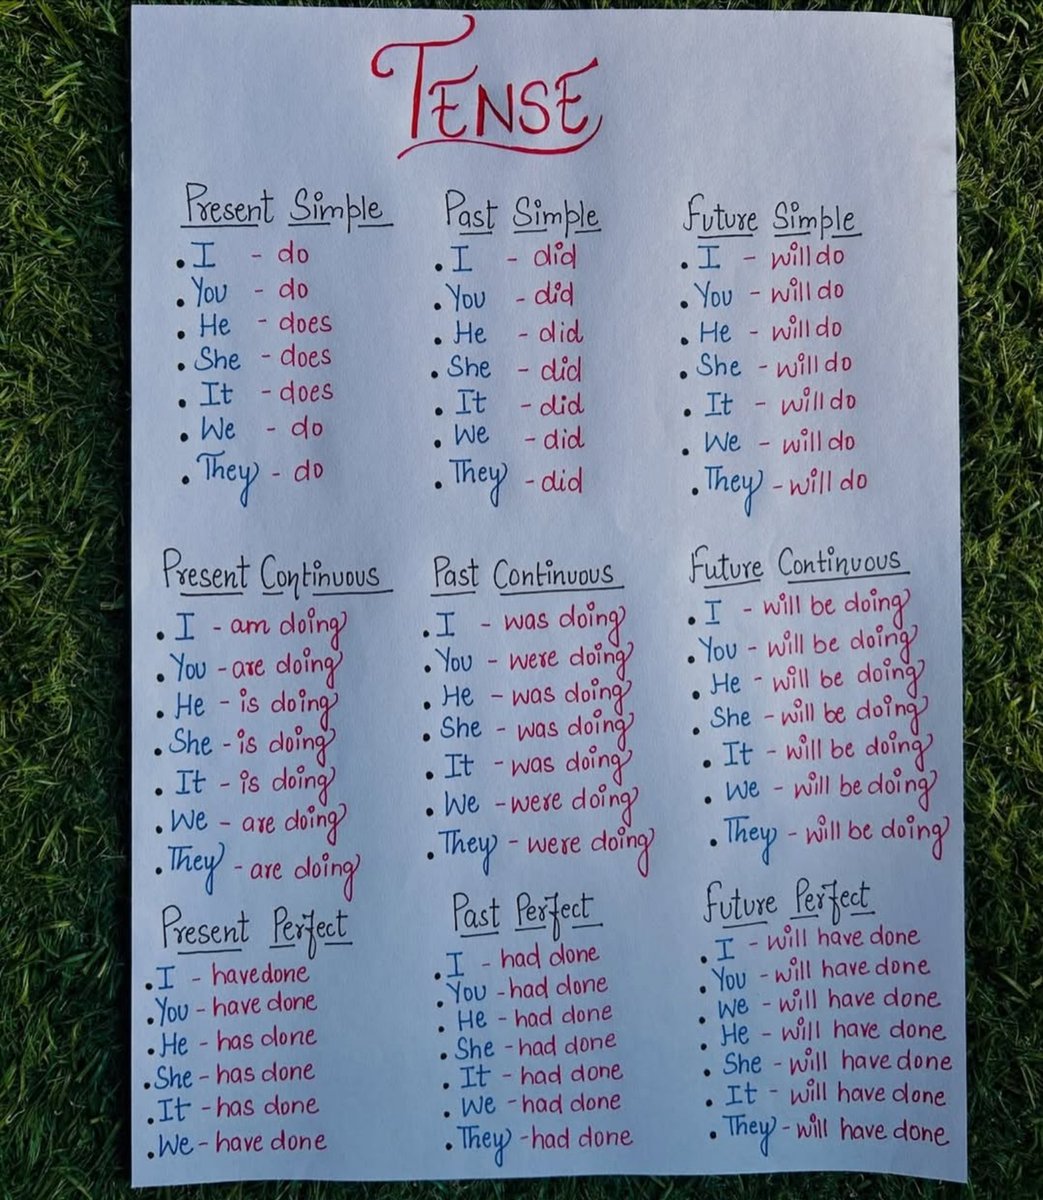 TENSE
Present Simple
. I - do
. You - do
. He - does
. She - does
. It - does
. We - do
. They - do
Past Simple
. I - did
. You - did
. He - did
. She - did
. It - did
. We - did
. They - did
Future Simple
. I - will do
. You - will do
. He - will do
. She - will do
. It - will do
. We - will do
. They - will do
Present Continuous
. I - am doing
. You - are doing
. He - is doing
. She - is doing
. It - is doing
. We - are doing
. They - are doing
Past Continuous
. I - was doing
. You - were doing
. He - was doing
. She - was doing
. It - was doing
. We - were doing
. They - were doing
Future Continuous
. I - will be doing
. You - will be doing
. He - will be doing
. She - will be doing
. It - will be doing
. We - will be doing
. They - will be doing
Present Perfect
. I - have done
. You - have done
. He - has done
. She - has done
. It - has done
. We - have done
Past Perfect
. I - had done
. You - had done
. He - had done
. She - had done
. It - had done
. We - had done
. They - had done
Future Perfect
. I - will have done
. You - will have done
. We - will have done
. He - will have done
. She - will have done
. It - will have done
. They - will have done